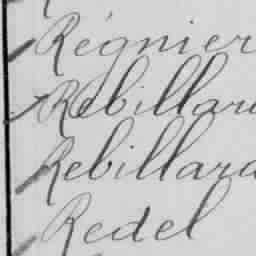 Régnier
Rebillard
Rebillard
Redel